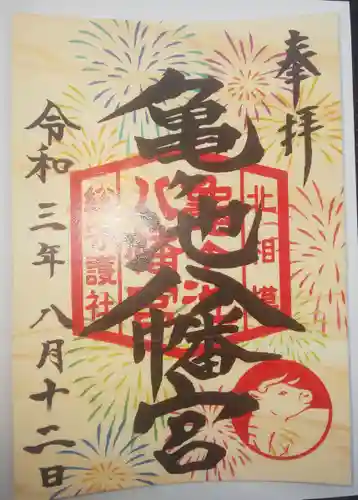 奉拝
亀ヶ池八幡宮
北相模
亀ヶ池
八幡宮
総守護社
令和三年八月十二日